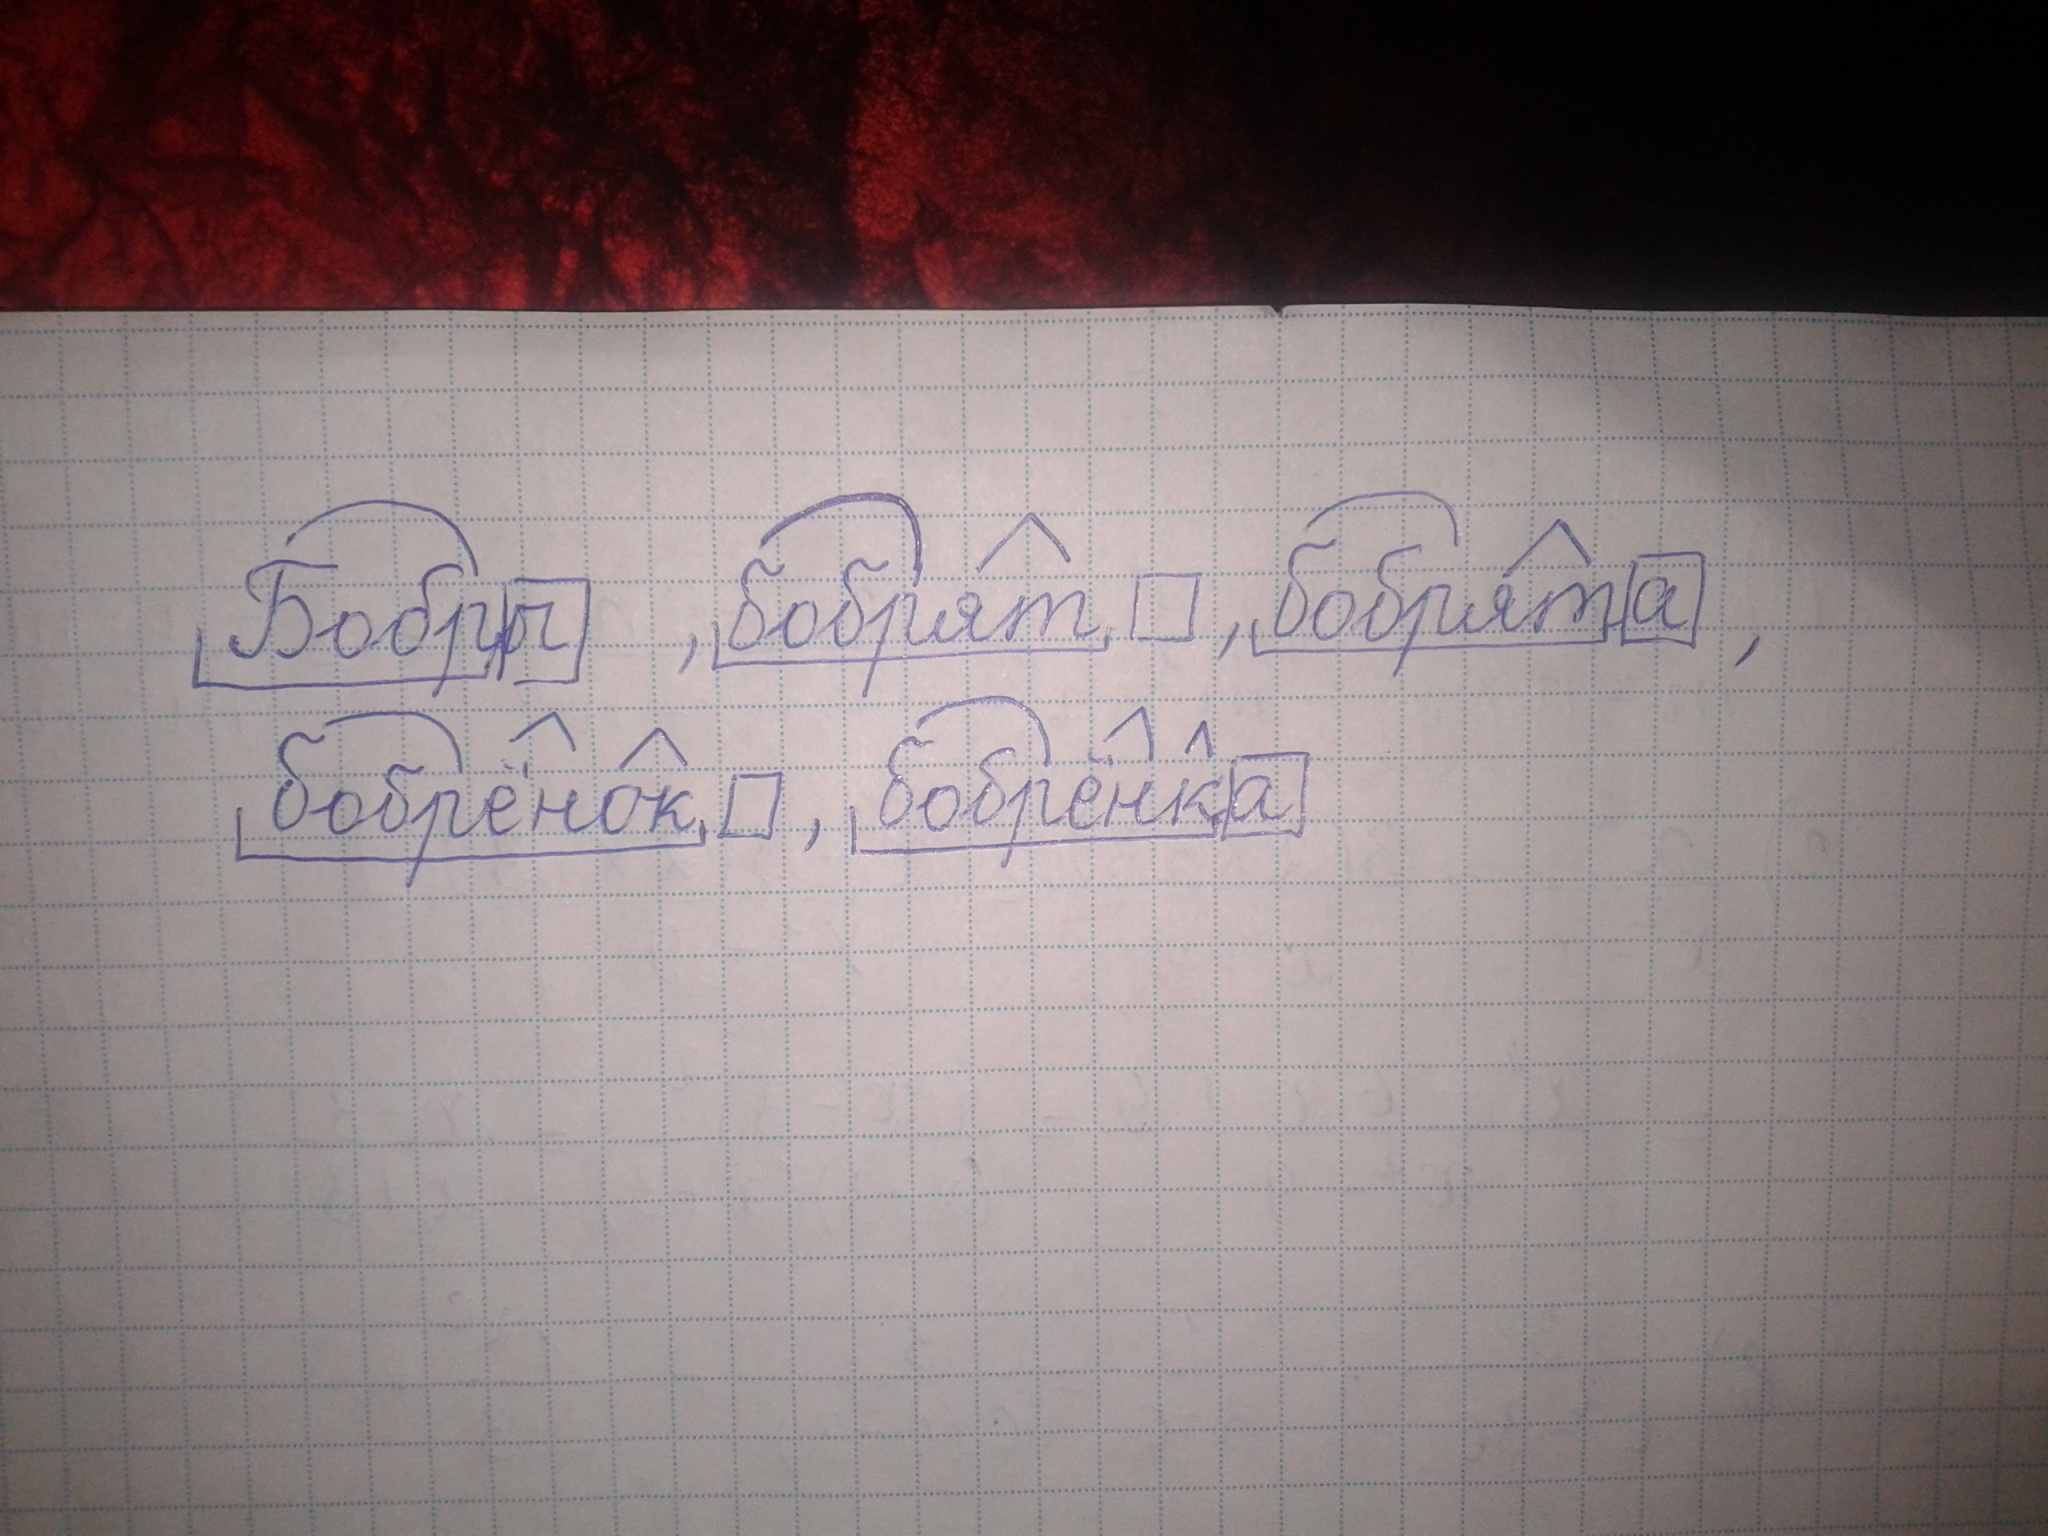 Бобры, бобрят, бобрята,
бобрёнок, бобрёнка